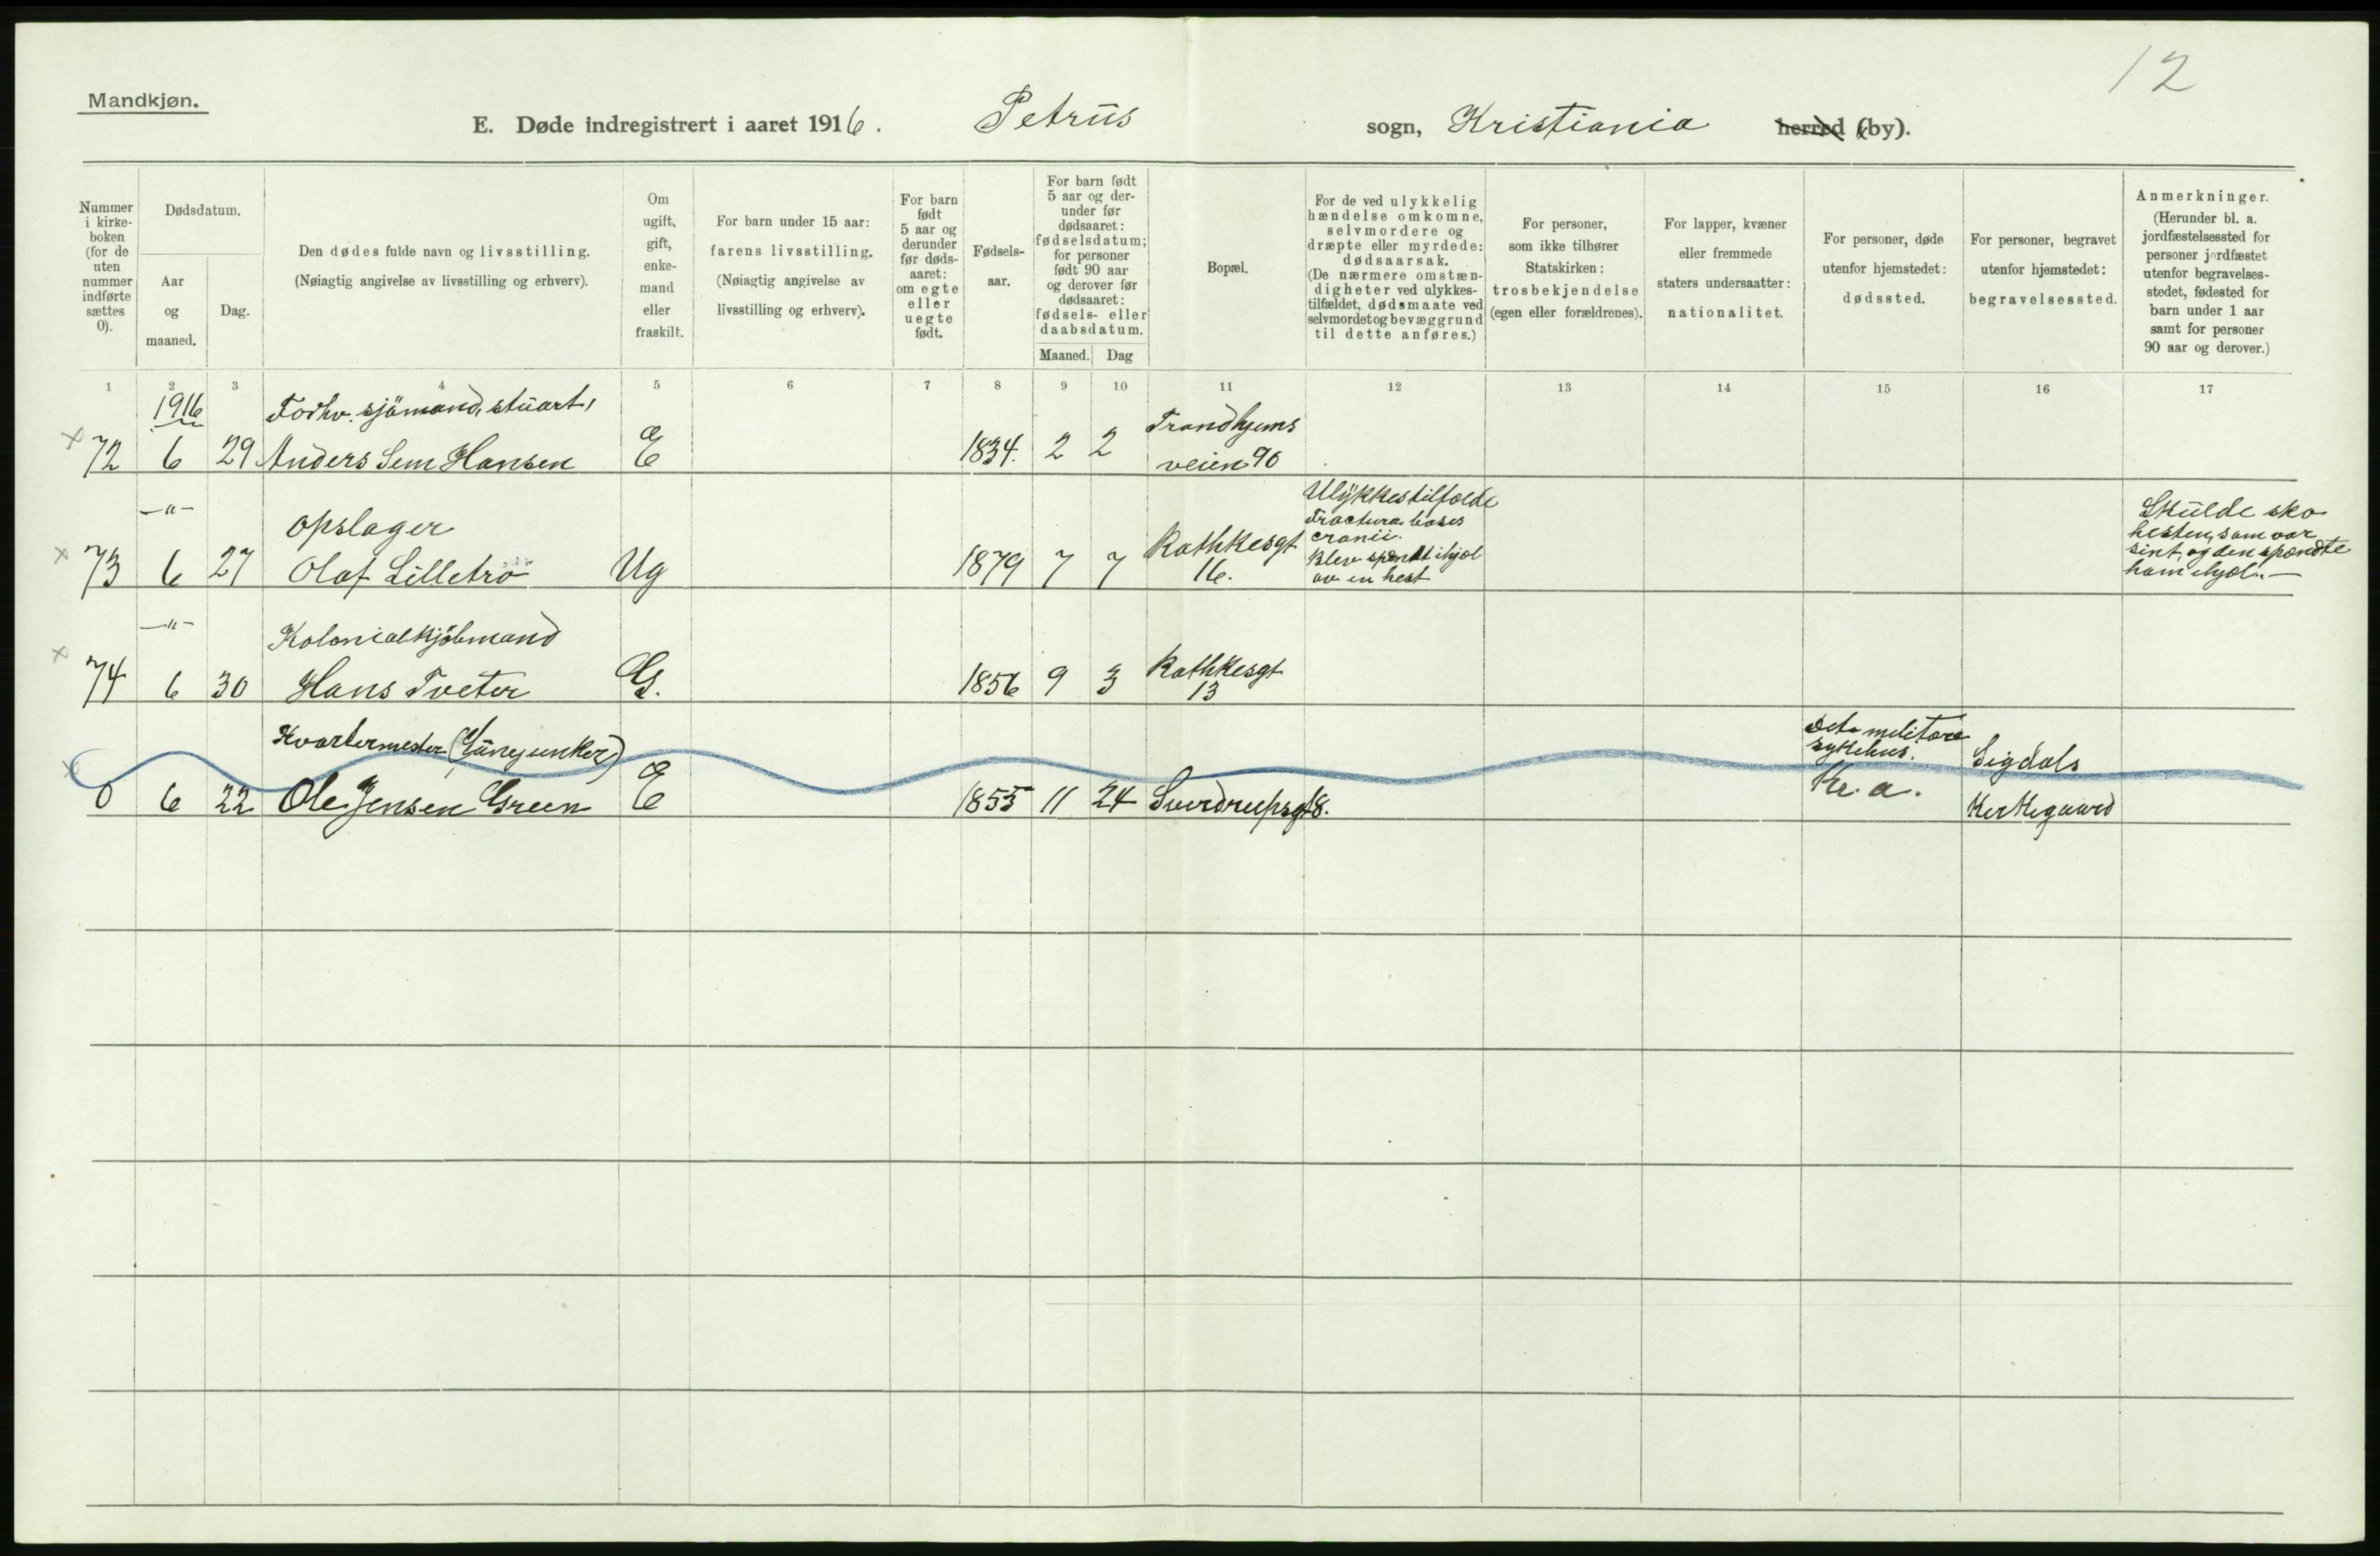 12
Mandkjøn.
E. Døde indregistrert i aaret 1916. Petrus sogn, Kristiania herred (by).
Nummer
i kirke-
boken
(for de
uten
nummer
indførte
sættes
0).
Dødsdatum.
Aar
og
maaned.
Dag.
Den dødes fulde navn og livsstilling.
(Nøiagtig angivelse av livsstilling og erhverv).
Om
ugift,
gift,
enke-
mand
eller
fraskilt.
For barn under 15 aar:
farens livsstilling.
(Nøiagtig angivelse av
livsstilling og erhverv).
For barn
født
5 aar og
derunder
før døds-
aaret:
om egte
eller
uegte
født.
Fødsels-
aar.
For barn født
5 aar og der-
under før
dødsaaret:
fødselsdatum;
for personer
født 90 aar
og derover før
dødsaaret:
fødsels- eller
daabsdatum.
Maaned. Dag
Bopæl.
For de ved ulykkelig
hændelse omkomne,
selvmordere og
dræpte eller myrdede:
dødsaarsak.
(De nærmere omstæn-
digheter ved ulykkes-
tilfældet, dødsmaate ved
selvmordet og bevæggrund
til dette anføres.)
For personer,
som ikke tilhører
Statskirken:
trosbekjendelse
(egen eller forældrenes).
For lapper, kvæner
eller fremmede
staters undersaatter:
nationalitet.
For personer, døde
utenfor hjemstedet:
dødssted.
For personer, begravet
utenfor hjemstedet:
begravelsessted.
Anmerkninger.
(Herunder bl. a.
jordfæstelsessted for
personer jordfæstet
utenfor begravelses-
stedet, fødested for
barn under 1 aar
samt for personer
90 aar og derover.)
1 2 3 4 5 6 7 8 9 10 11 12 13 14 15 16 17
1916 Forhv. sjömand, stuart, Trondhjems
x 72 6 29 Anders Sem Hansen E 1834. 2 2 veien 90
-"- Opslager
x 73 6 27 Olaf Lilletrö Ug 1879 7 7 Rathkesgt
16.
Ulykkestilfælde
Fractura bases
cranii.
Blev spændt ihjel
av en hest
Skulde sko
hesten, som var
sint, og den spændte
ham ihjel. —
-"- Kolonialkjöbmand
x 74 6 30 Hans Tveter G. 1856 9 3 Rathkesgt
13
Kvartermester
x 0 6 22 Ole Jensen Green E 1855 11 24 Sverdrupsgt 8.
Det militære
sykehus.
Kr. a.
Sigdals
Kirkegaard